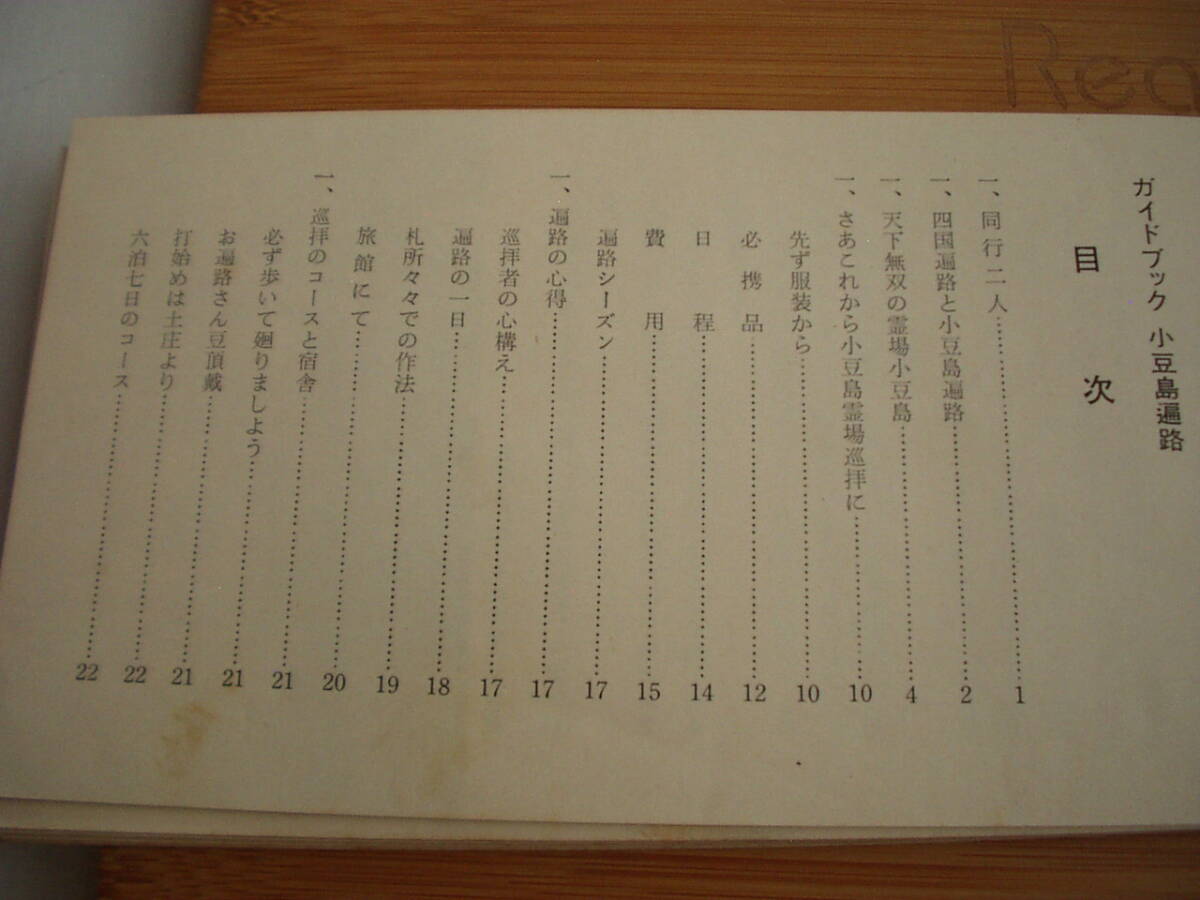 ガイドブック 小豆島遍路
目次
一、同行二人……1
一、四国遍路と小豆島遍路……2
一、天下無双の霊場小豆島……4
一、さあこれから小豆島霊場巡拝に……10
先ず服装から……10
必携品……12
日程……14
費用……15
遍路シーズン……17
一、遍路の心得……17
巡拝者の心構え……17
遍路の一日……18
札所々々での作法……19
旅館にて……20
一、巡拝のコースと宿舎……21
必ず歩いて廻りましよう……21
お遍路さん豆頂戴……21
打始めは土庄より……22
六泊七日のコース……22